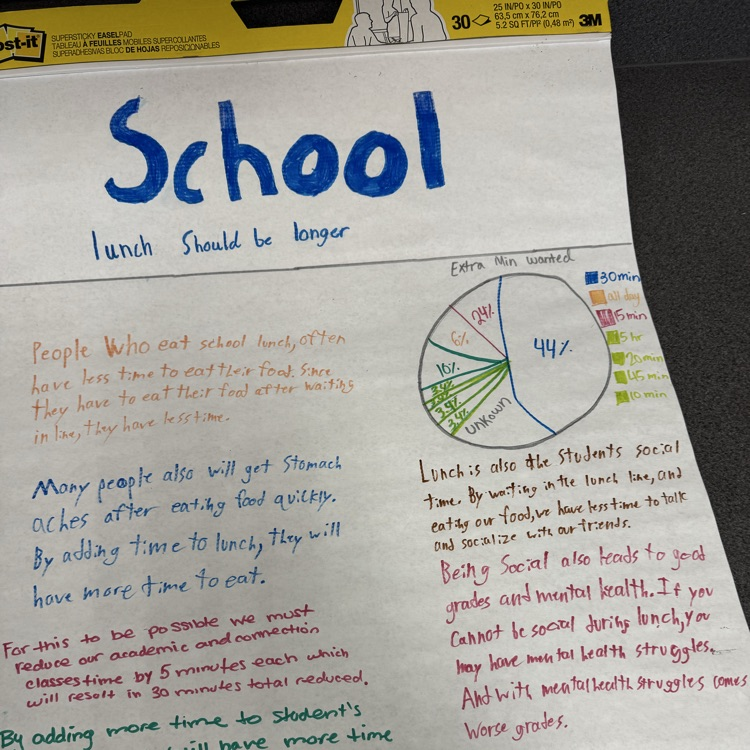 ost-it
SUPERSTICKY EASEL PAD
TABLEAU À FEUILLES MOBILES SUPERCOLLANTES
SUPERADHESIVAS BLOC DE HOJAS REPOSICIONABLES
30
25 IN/PO x 30 IN/PO
63,5 cm x 76,2 cm
5.2 SQ FT/PP (0,48 m²)
3M
School
lunch Should be longer
Extra Min wanted
44%
24%
6%
10%
3.4%
3.4%
3.4%
unkown
30min
all day
15min
5 hr
20min
45 min
10 min
People Who eat school lunch, often
have less time to eat their food. Since
they have to eat their food after waiting
in line, they have less time.
Many people also will get Stomach
aches after eating food quickly.
By adding time to lunch, they will
have more time to eat.
For this to be possible we must
reduce our academic and connection
classes time by 5 minutes each which
will result in 30 minutes total reduced.
By adding more time to student's
will have more time
Lunch is also the Students social
time. By waiting in the lunch line, and
eating our food, we have less time to talk
and socialize with our friends.
Being Social also leads to good
grades and mental health. If you
cannot be social during lunch, you
may have mental health struggles.
And with mental health struggles comes
Worse grades.